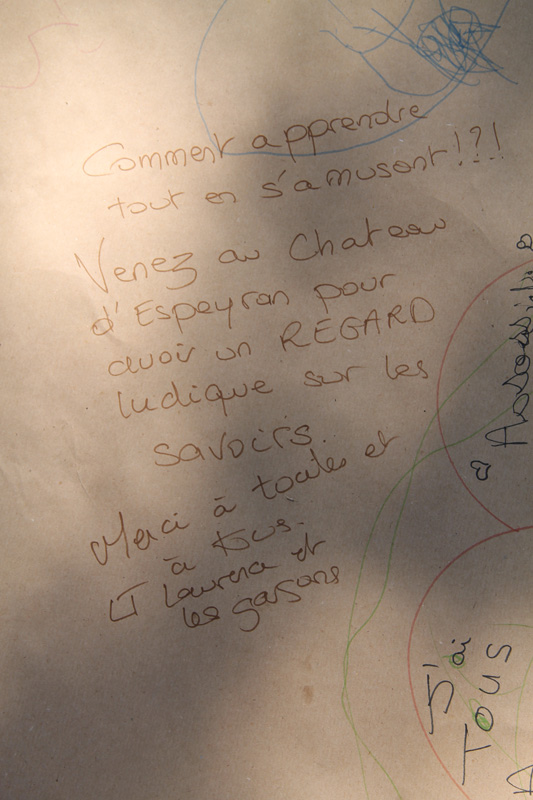 Comment apprendre
tout en s'amusant!?!
Venez au Chateau
d'Espeyran pour
avoir un REGARD
ludique sur les
savoirs.
Merci à toutes et
à tous.
Laurena et
les garsons
J'ai
TOUS